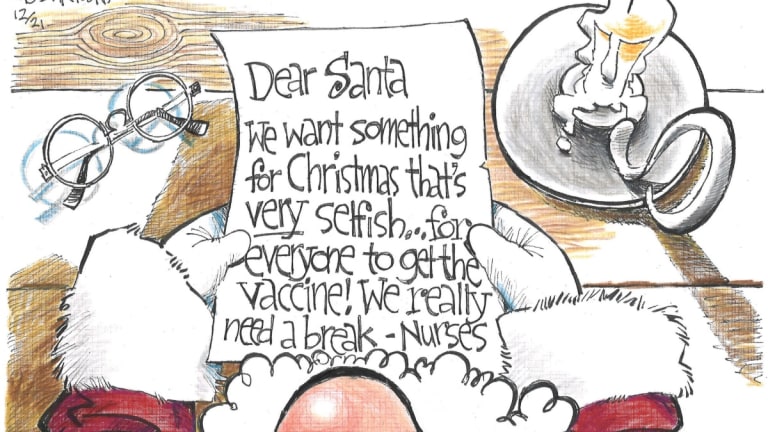 12/21
Dear Santa
We want something
for Christmas that's
very selfish...for
everyone to get the
vaccine! We really
need a break - Nurses